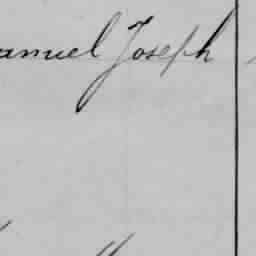 amuel Joseph